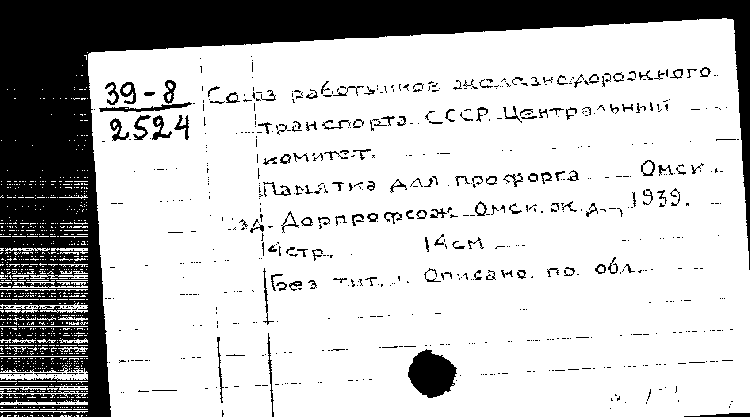 39-8
2524
Союз работников железнодорожного
транспорта СССР. Центральный
комитет.
Памятка для профорга Омск.
Изд. Дорпрофсож Омск. ж. д., 1939.
4 стр. 14 см
Без тит. л. Описано по обл.